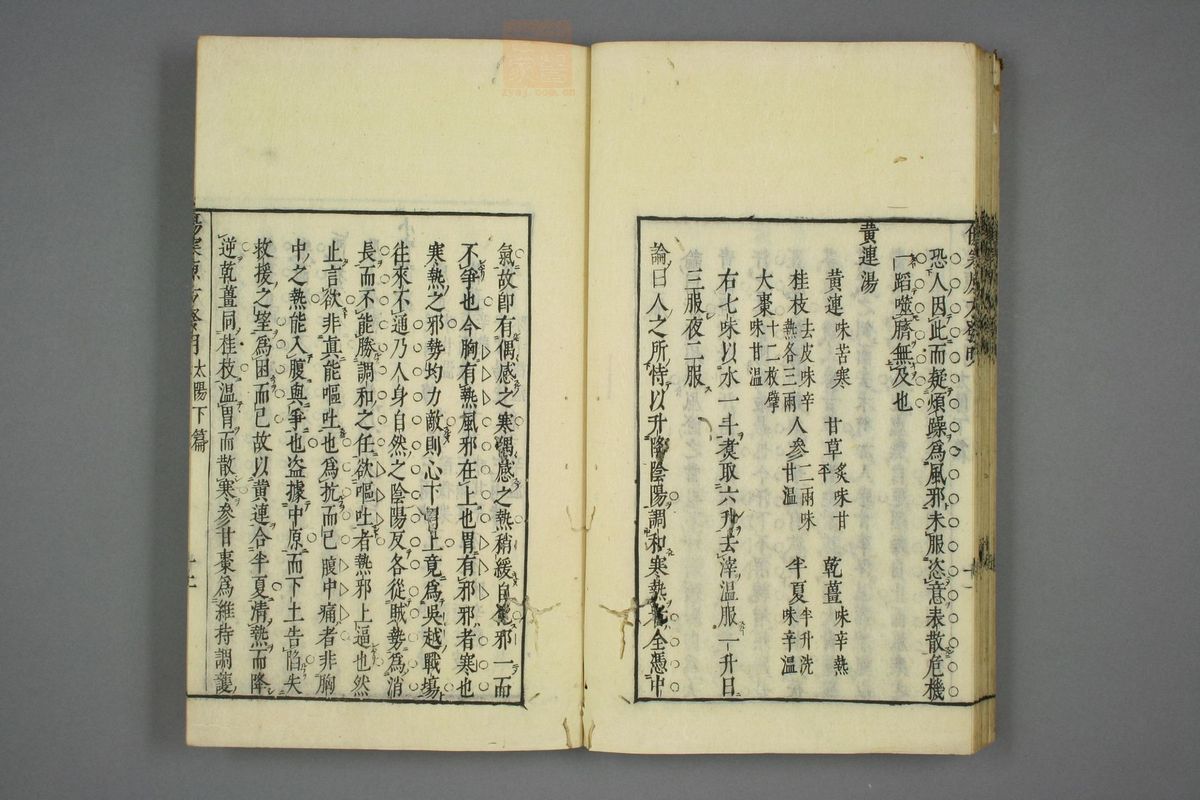 恐人因此而疑煩躁為風邪未服恣意表散危機
一蹈噬臍無及也
黄連湯
黄連味苦寒 甘草炙味甘平 乾薑味辛熱
桂枝去皮味辛熱各三兩 人参二兩味甘溫 半夏半升洗味辛溫
大棗十二枚擘味甘溫
右七味以水一斗煑取六升去滓溫服一升日
三服夜二服
論曰人之所恃以升降陰陽調和寒熱者全憑中
氣故卽有偶感之寒偶感之熱稍緩自邪一而
不爭也今胸有熱風邪在上也胃有邪邪者寒也
寒熱之邪勢均力敵則心下胃上竟為吳越戰塲
往來不通乃人身自然之陰陽反各從賊勢為消
長而不能勝調和之任欲嘔吐者熱邪上逼也然
止言欲非真能嘔吐也為抗而已腹中痛者非胸
中之熱能入腹與爭也盗據中原而下土告陷失
救援之望為困而已故以黄連合半夏清熱而降
逆乾薑同桂枝溫胃而散寒参甘棗為維持調護
傷寒原方發明 太陽下篇 十二